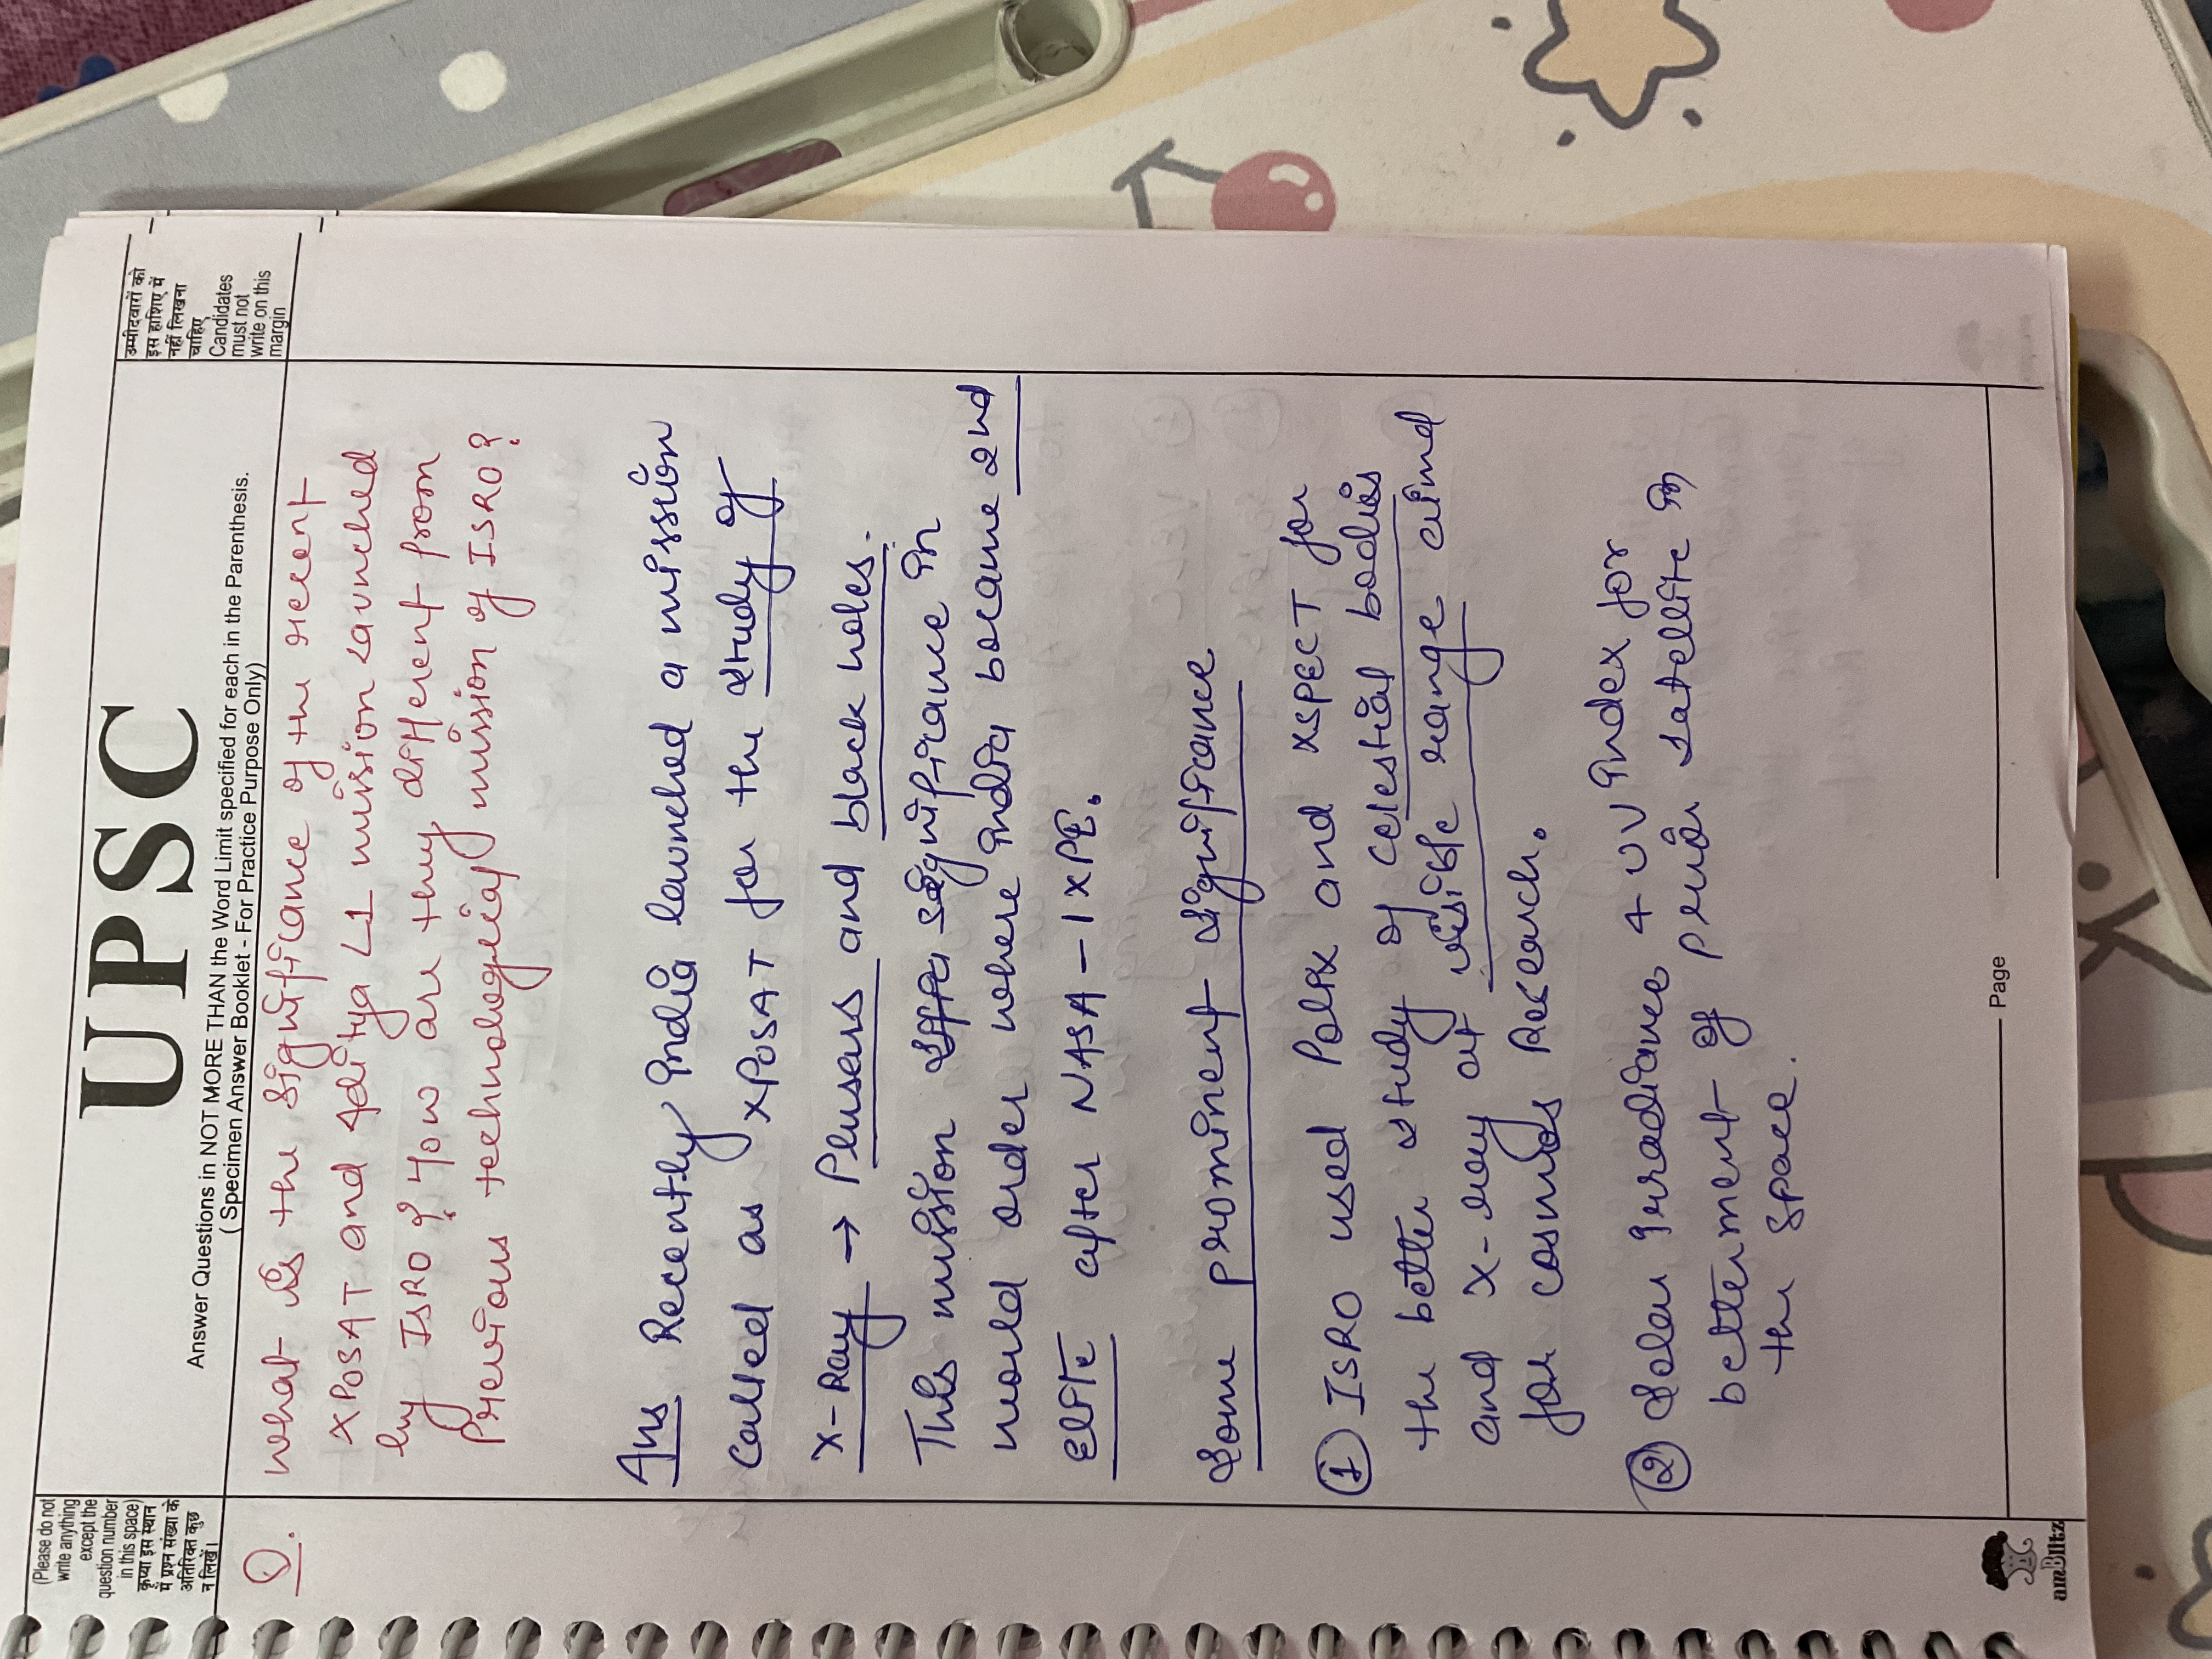 (Please do not
write anything
except the
question number
in this space)
कृप्या इस स्थान
में प्रश्न संख्या के
अतिरिक्त कुछ
न लिखें।
UPSC
Answer Questions in NOT MORE THAN the Word Limit specified for each in the Parenthesis.
( Specimen Answer Booklet - For Practice Purpose Only)
उम्मीदवारों को
इस हाशिए में
नहीं लिखना
चाहिए
Candidates
must not
write on this
margin
Q. What is the significance of the recent
XPOSAT and Aditya L1 mission launched
by ISRO? How are they different from
previous technological mission of ISRO?
Ans Recently India launched a mission
called as XPOSAT for the study of
X-Ray → Plusers and black holes.
This mission significance in
world order where India became 2nd
elite after NASA-IXPE.
Some prominent significance
① ISRO used Polix and XSPECT for
the better study of celestial bodies
and X-ray at visible range
for cosmos Research.
② Solar Irradiance & UV Index for
betterment of satellite in
the space.
Page
amBlitz